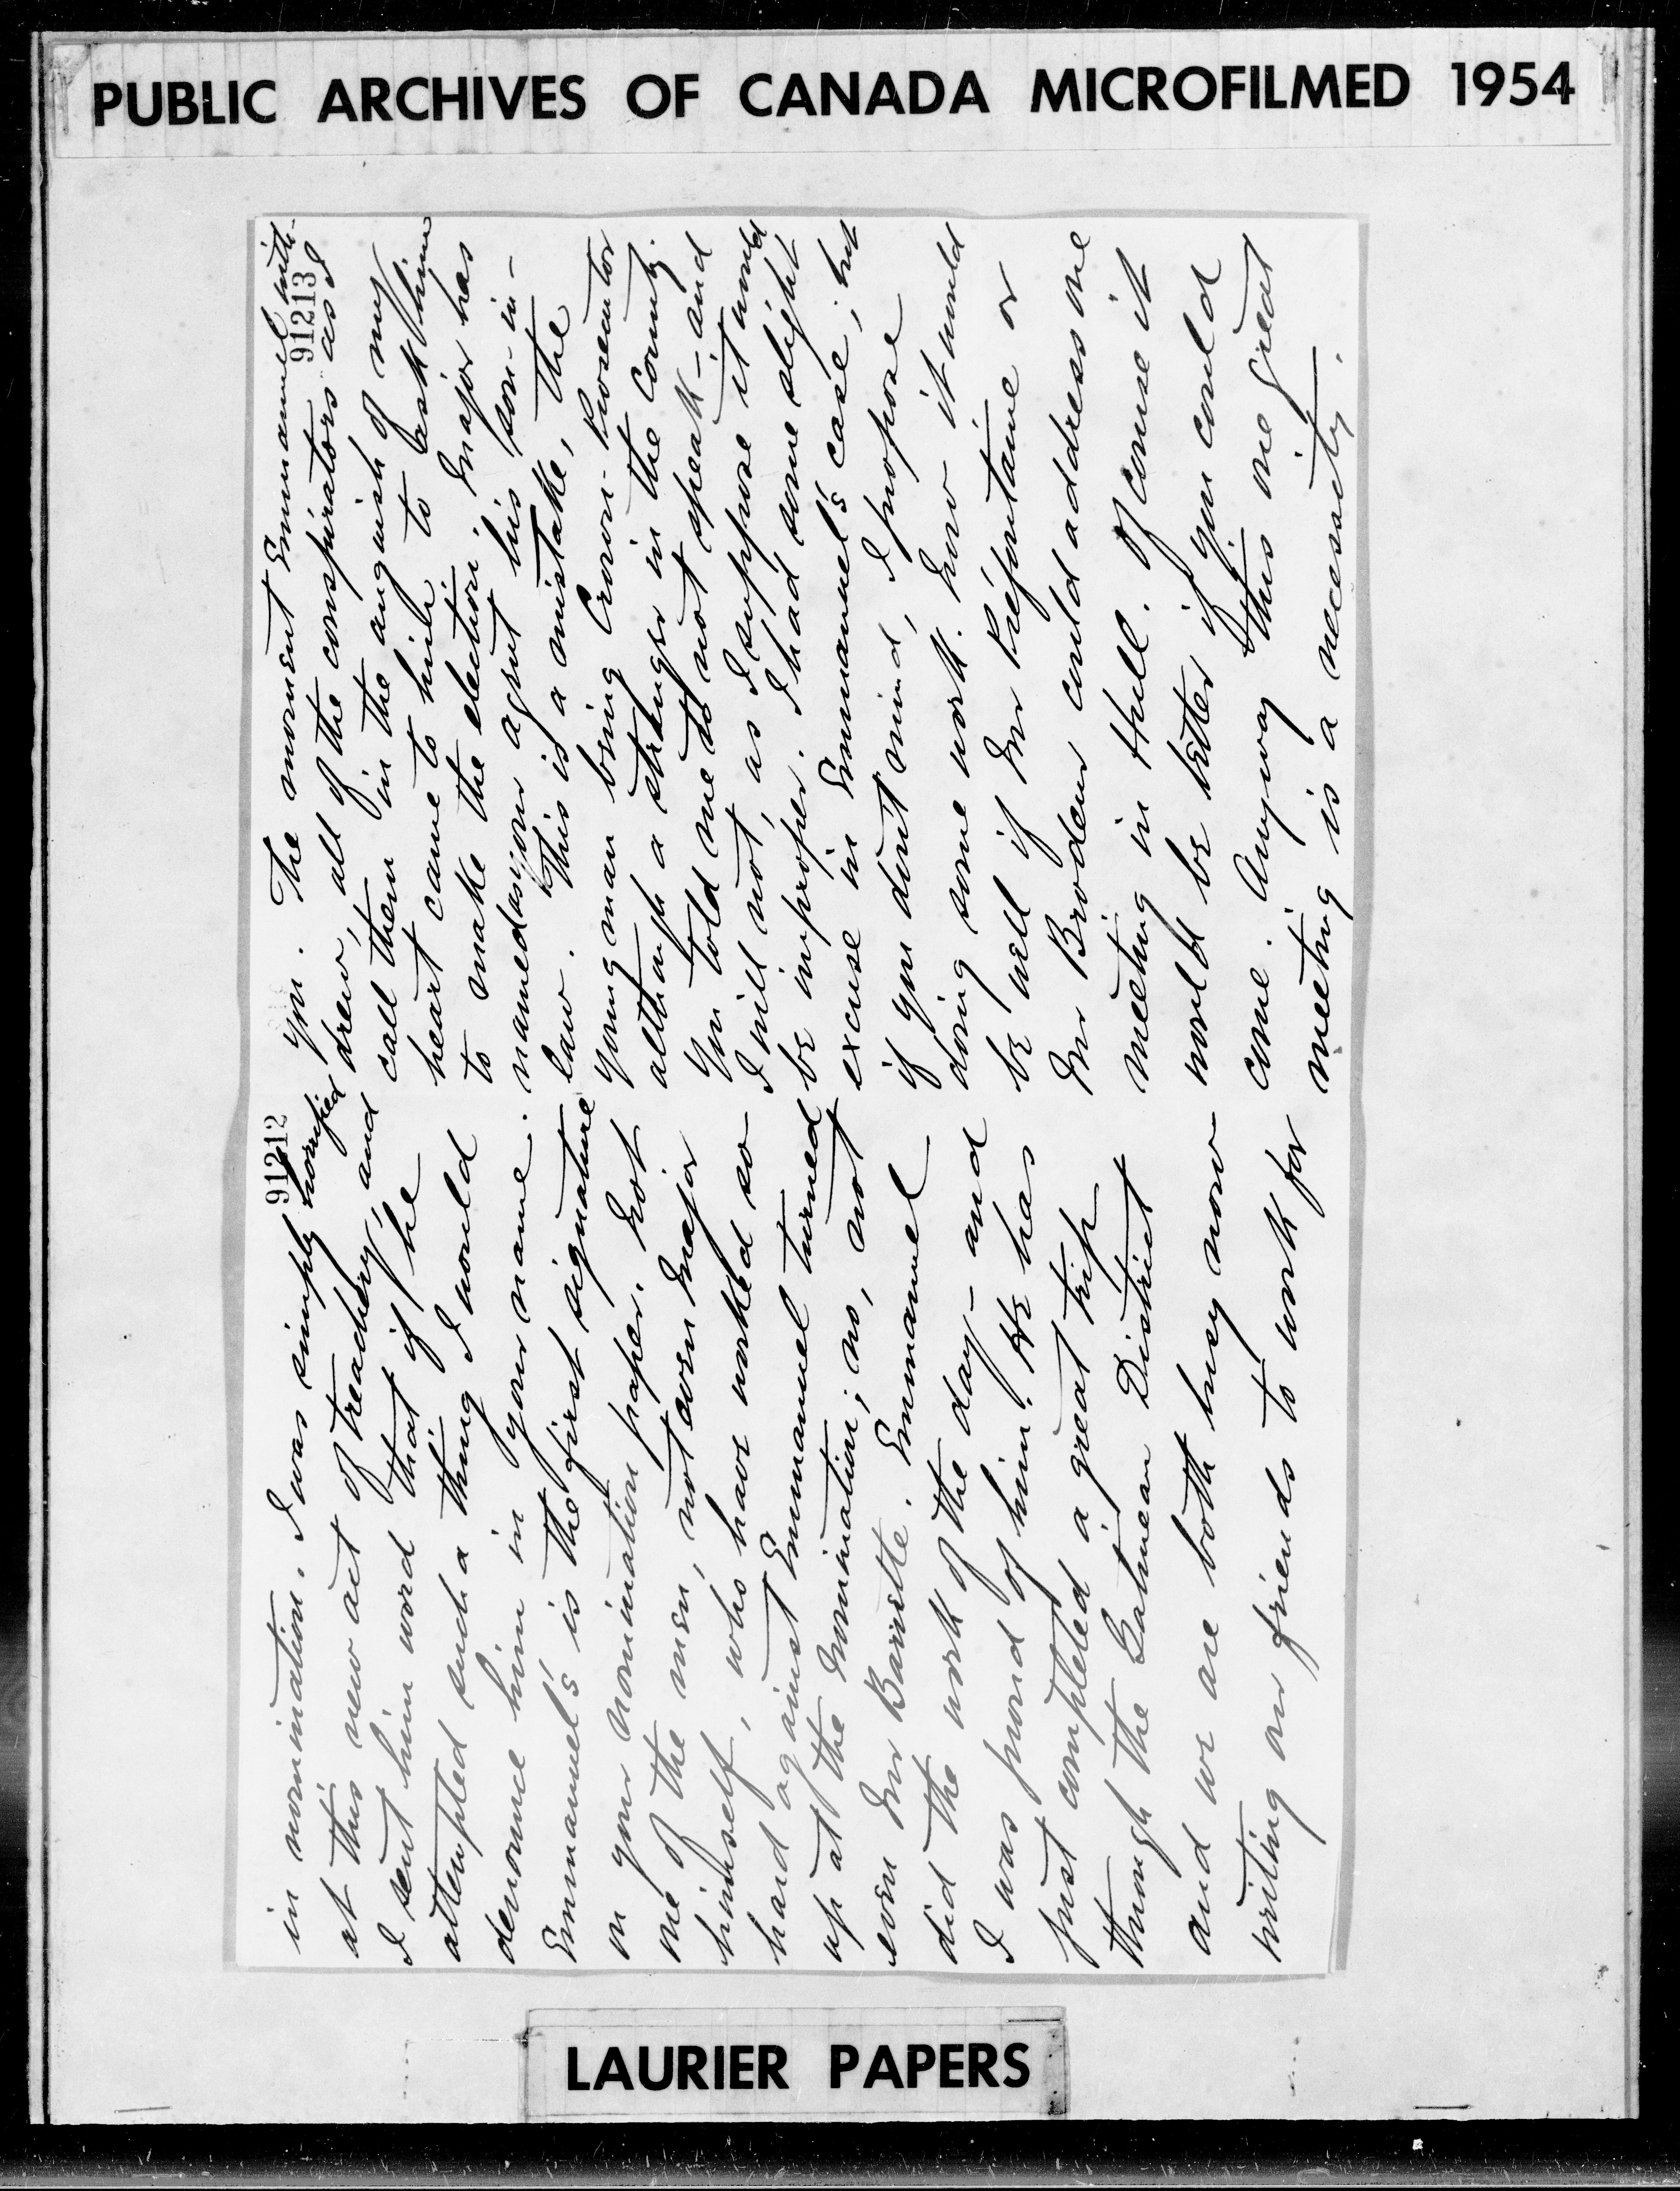 PUBLIC ARCHIVES OF CANADA MICROFILMED 1954
91212
in nomination. I was simply horrified
at this new act of treachery, and
I sent him word that if he
attempted such a thing I would
denounce him in your name.
Emmanuel's is the first signature
on your nomination paper. Not
one of the men, not even Major
himself, who have worked so
hard against Emmanuel turned
up at the nomination; no, not
even Mr Barrette. Emmanuel
did the work of the day - and
I was proud of him. He has
just completed a great trip
through the Gatineau District
and we are both busy now
writing our friends to work for
91213
you. The moment Emmanuel with-
drew, all of the conspirators as I
call them in the anguish of my
heart came to him to ask him
to make the election. Major has
named as your agent his son-in-
law. This is a mistake, the
young man being Crown Prosecutor
although a stranger in the County.
You told me to not speak - and
I will not, as I suppose it would
be improper. I had some slight
excuse in Emmanuel's case; but
if you don't mind, I propose
doing some work. Now it would
be well if Mr Préfontaine or
Mr Brodeur could address one
meeting in Hull. Of course it
would be better if you could
come. Anyway this one great
meeting is a necessity.
LAURIER PAPERS